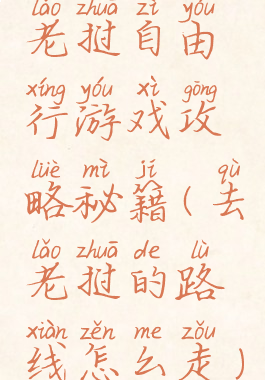 lǎo zhuā zì yóu
老挝自由
xíng yóu xì gōng
行游戏攻
lüè mì jí qù
略秘籍(去
lǎo zhuā de lù
老挝的路
xiàn zěn me zǒu
线怎么走)